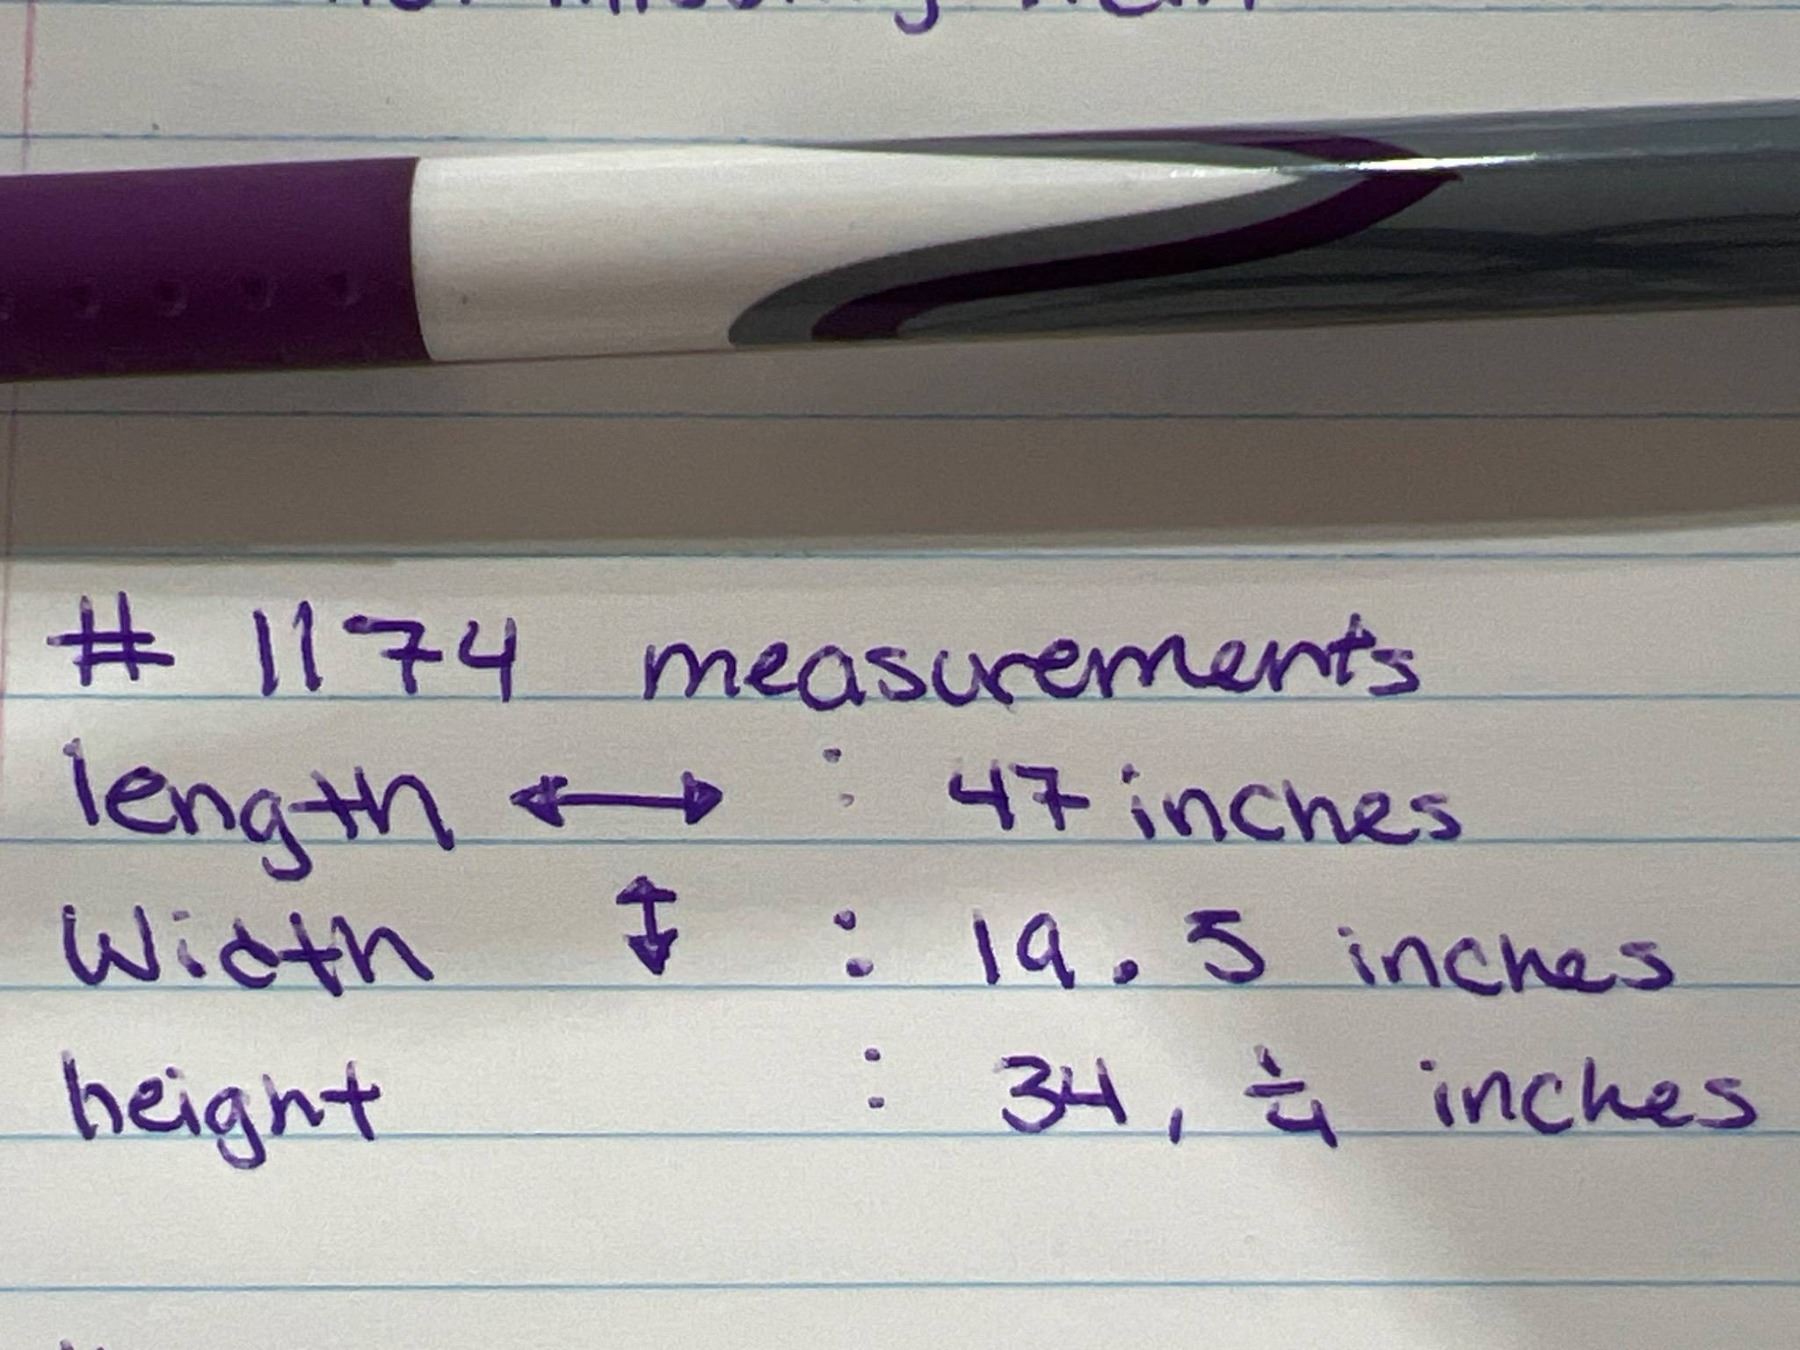 # 1174 measurements
length ↔ : 47 inches
Width ↕ : 19.5 inches
height : 34, 1/4 inches